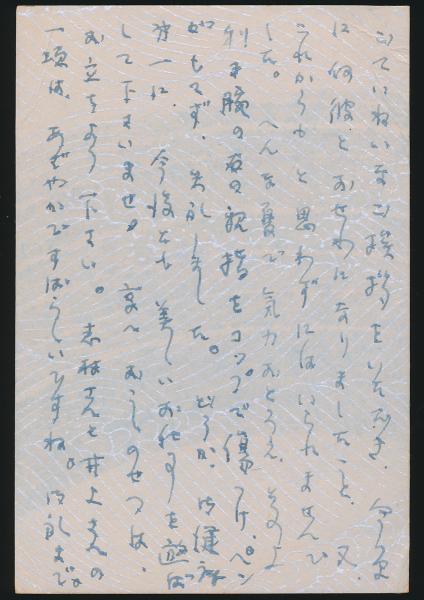 ごていねいなご挨拶をいただき、今更
に何彼とおせわになりましたこと、又、
これからもと思わずにはいられませんで
した。へんな夏で気力おとろえ、その上
利き腕の右の親指をコップで傷つけ、ペン
がもてず、失礼しました。どうか、御健祥
第一に、今後とも美しいお仕事を遊ば
して下さいませ。京へおこしのせつは、
お立ちより下さい。志村さんと井上さんの
一頃は、あざやかですばらしいですね。御礼まで。